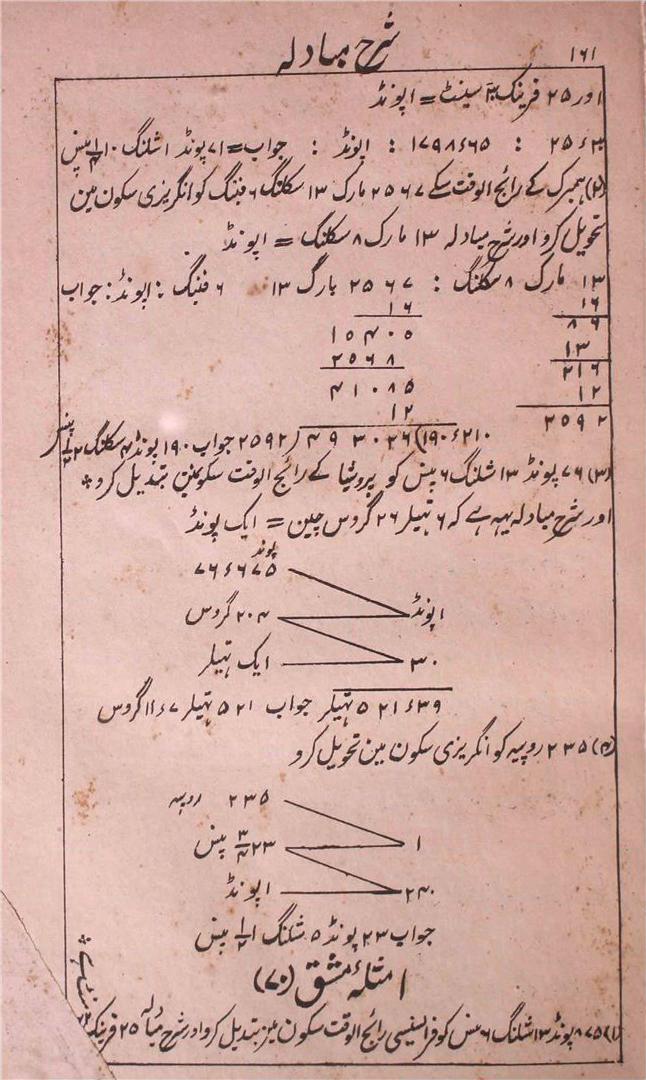 شرح مبادلہ ۱۶۱
اور ۲۵ فرینک سینٹ = ا پونڈ
۲۵۶۲ : ۱۷۹۸۶۶۵ : اپونڈ : جواب = ۷۱ پونڈ ا شلنگ ۱۰ ۱/۴ پنس
(۲) ہمبرگ کے رائج الوقت سکے ۲۵۶۷ مارک ۱۳ سکلنگ ۶ فننگ کو انگریزی سکون مین
تحویل کرو اور شرح مبادلہ ۱۳ مارک ۸ سکلنگ = اپونڈ
۱۳ مارک ۸ سکلنگ : ۲۵۶۷ مارک ۱۳ ۶ فننگ : اپونڈ : جواب
۱۶ ۱۶
۸۶ ۱۵۴۰۵
۱۳ ۲۵۶۸
۲۱۶ ۴۱۰۸۵
۱۲ ۱۲
۲۵۹۲ ۲۵۹۲) ۴۹۳۰۲۶ (۱۹۰۶۲۱۰ جواب ۱۹۰ پونڈ ۴ سکلنگ ۲ ۱/۲ پنس
(۳) ۷۶ پونڈ ۱۳ شلنگ ۶ پنس کو پروشیا کے رائج الوقت سکونمین تبدیل کرو *
اور شرح مبادلہ یہہ ہے کہ ۶ تہیلر ۲۶ گروس چین = ایک پونڈ
پونڈ
۷۶۶۶۷۵
اپونڈ ۲۰۴ گروس
۳۰ ایک تہیلر
۵۲۱۶۳۹ تہیلر جواب ۵۲۱ تہیلر ۱۱۶۷ گروس
(۴) ۲۳۵ روپیہ کو انگریزی سکون مین تحویل کرو
۲۳۵ روپیہ
۱ ۲۳ ۳/۴ پنس
۲۴۰ اپونڈ
جواب ۲۳ پونڈ ۵ شلنگ ۱ ۱/۲ پنس
امثلۂ مشق (۷۰)
(۱) ۸۷۵ پونڈ ۱۳ شلنگ ۶ پنس کو فرانسیسی رائج الوقت سکون مین تبدیل کرو اور شرح مبادلہ ۲۵ فرینک